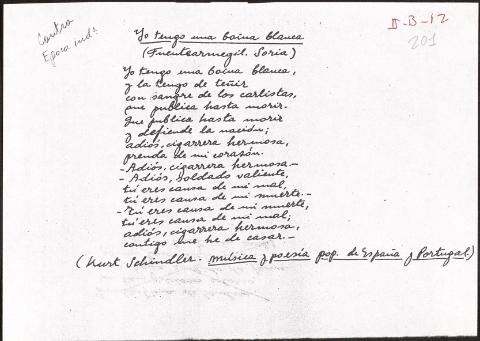 Contra
Epoca ind.
II-B-12
201
Yo tengo una boina blanca
(Fuentearmegil. Soria)
Yo tengo una boina blanca,
y la tengo de teñir
con sangre de los carlistas,
que publica hasta morir.
Que publica hasta morir
y defiende la nación;
adiós, cigarrera hermosa,
prenda de mi corazón.
-Adiós, cigarrera hermosa.-
-Adiós, soldado valiente,
tú eres causa de mi mal,
tú eres causa de mi muerte.-
-Tú eres causa de mi muerte,
tú eres causa de mi mal;
adiós, cigarrera hermosa,
contigo me he de casar.-
(Kurt Schindler. Música y poesía pop. de España y Portugal.)